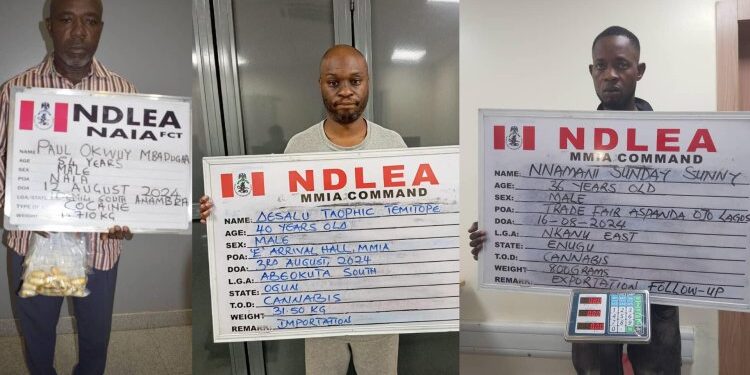 NDLEA
NAIA FCT
NAME PAUL OKWUY MBADUGHA
AGE 54 YEARS
SEX MALE
POA NAIA
DOA 12 AUGUST 2024
SOUTH ANAMBRA
COCAINE
WEIGHT 1.710KG
NDLEA
MMIA COMMAND
NAME: DESALU TAOPHIC TEMITOPE
AGE: 40 YEARS OLD
SEX: MALE
POA: 'E' ARRIVAL HALL, MMIA
DOA: 3RD AUGUST, 2024
L.G.A: ABEOKUTA SOUTH
STATE: OGUN
T.O.D: CANNABIS
WEIGHT 31.50 KG
REMARK: IMPORTATION
NDLEA
MMIA COMMAND
NAME: NNAMANI SUNDAY SUNNY
AGE: 36 YEARS OLD
SEX: MALE
POA: TRADE FAIR ASPANDA OJO LAGOS
DOA: 16-08-2024
L.G.A: NKANU EAST
STATE: ENUGU
T.O.D: CANNABIS
WEIGHT 800GRAMS
REMARK: EXPORTATION FOLLOW-UP